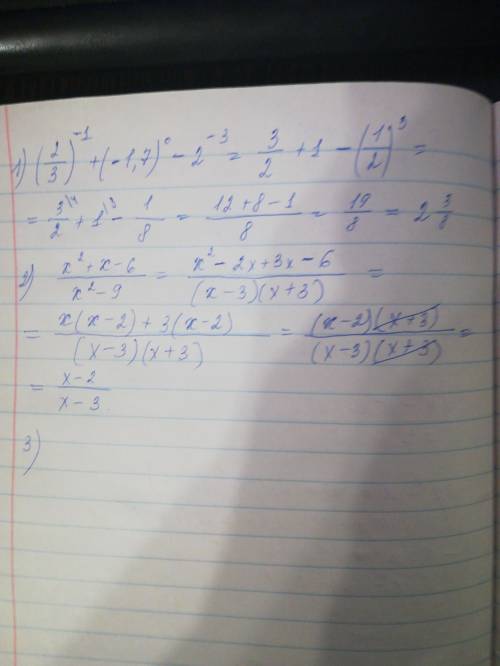 1) (2/3)^-1 + (-1,7)^0 - 2^-3 = 3/2 + 1 - (1/2)^3 =
= 3^\4/2 + 1^\8 - 1/8 = (12+8-1)/8 = 19/8 = 2 3/8
2) (x^2+x-6)/(x^2-9) = (x^2-2x+3x-6)/((x-3)(x+3)) =
= (x(x-2)+3(x-2))/((x-3)(x+3)) = ((x-2)(x+3))/((x-3)(x+3)) =
= (x-2)/(x-3)
3)